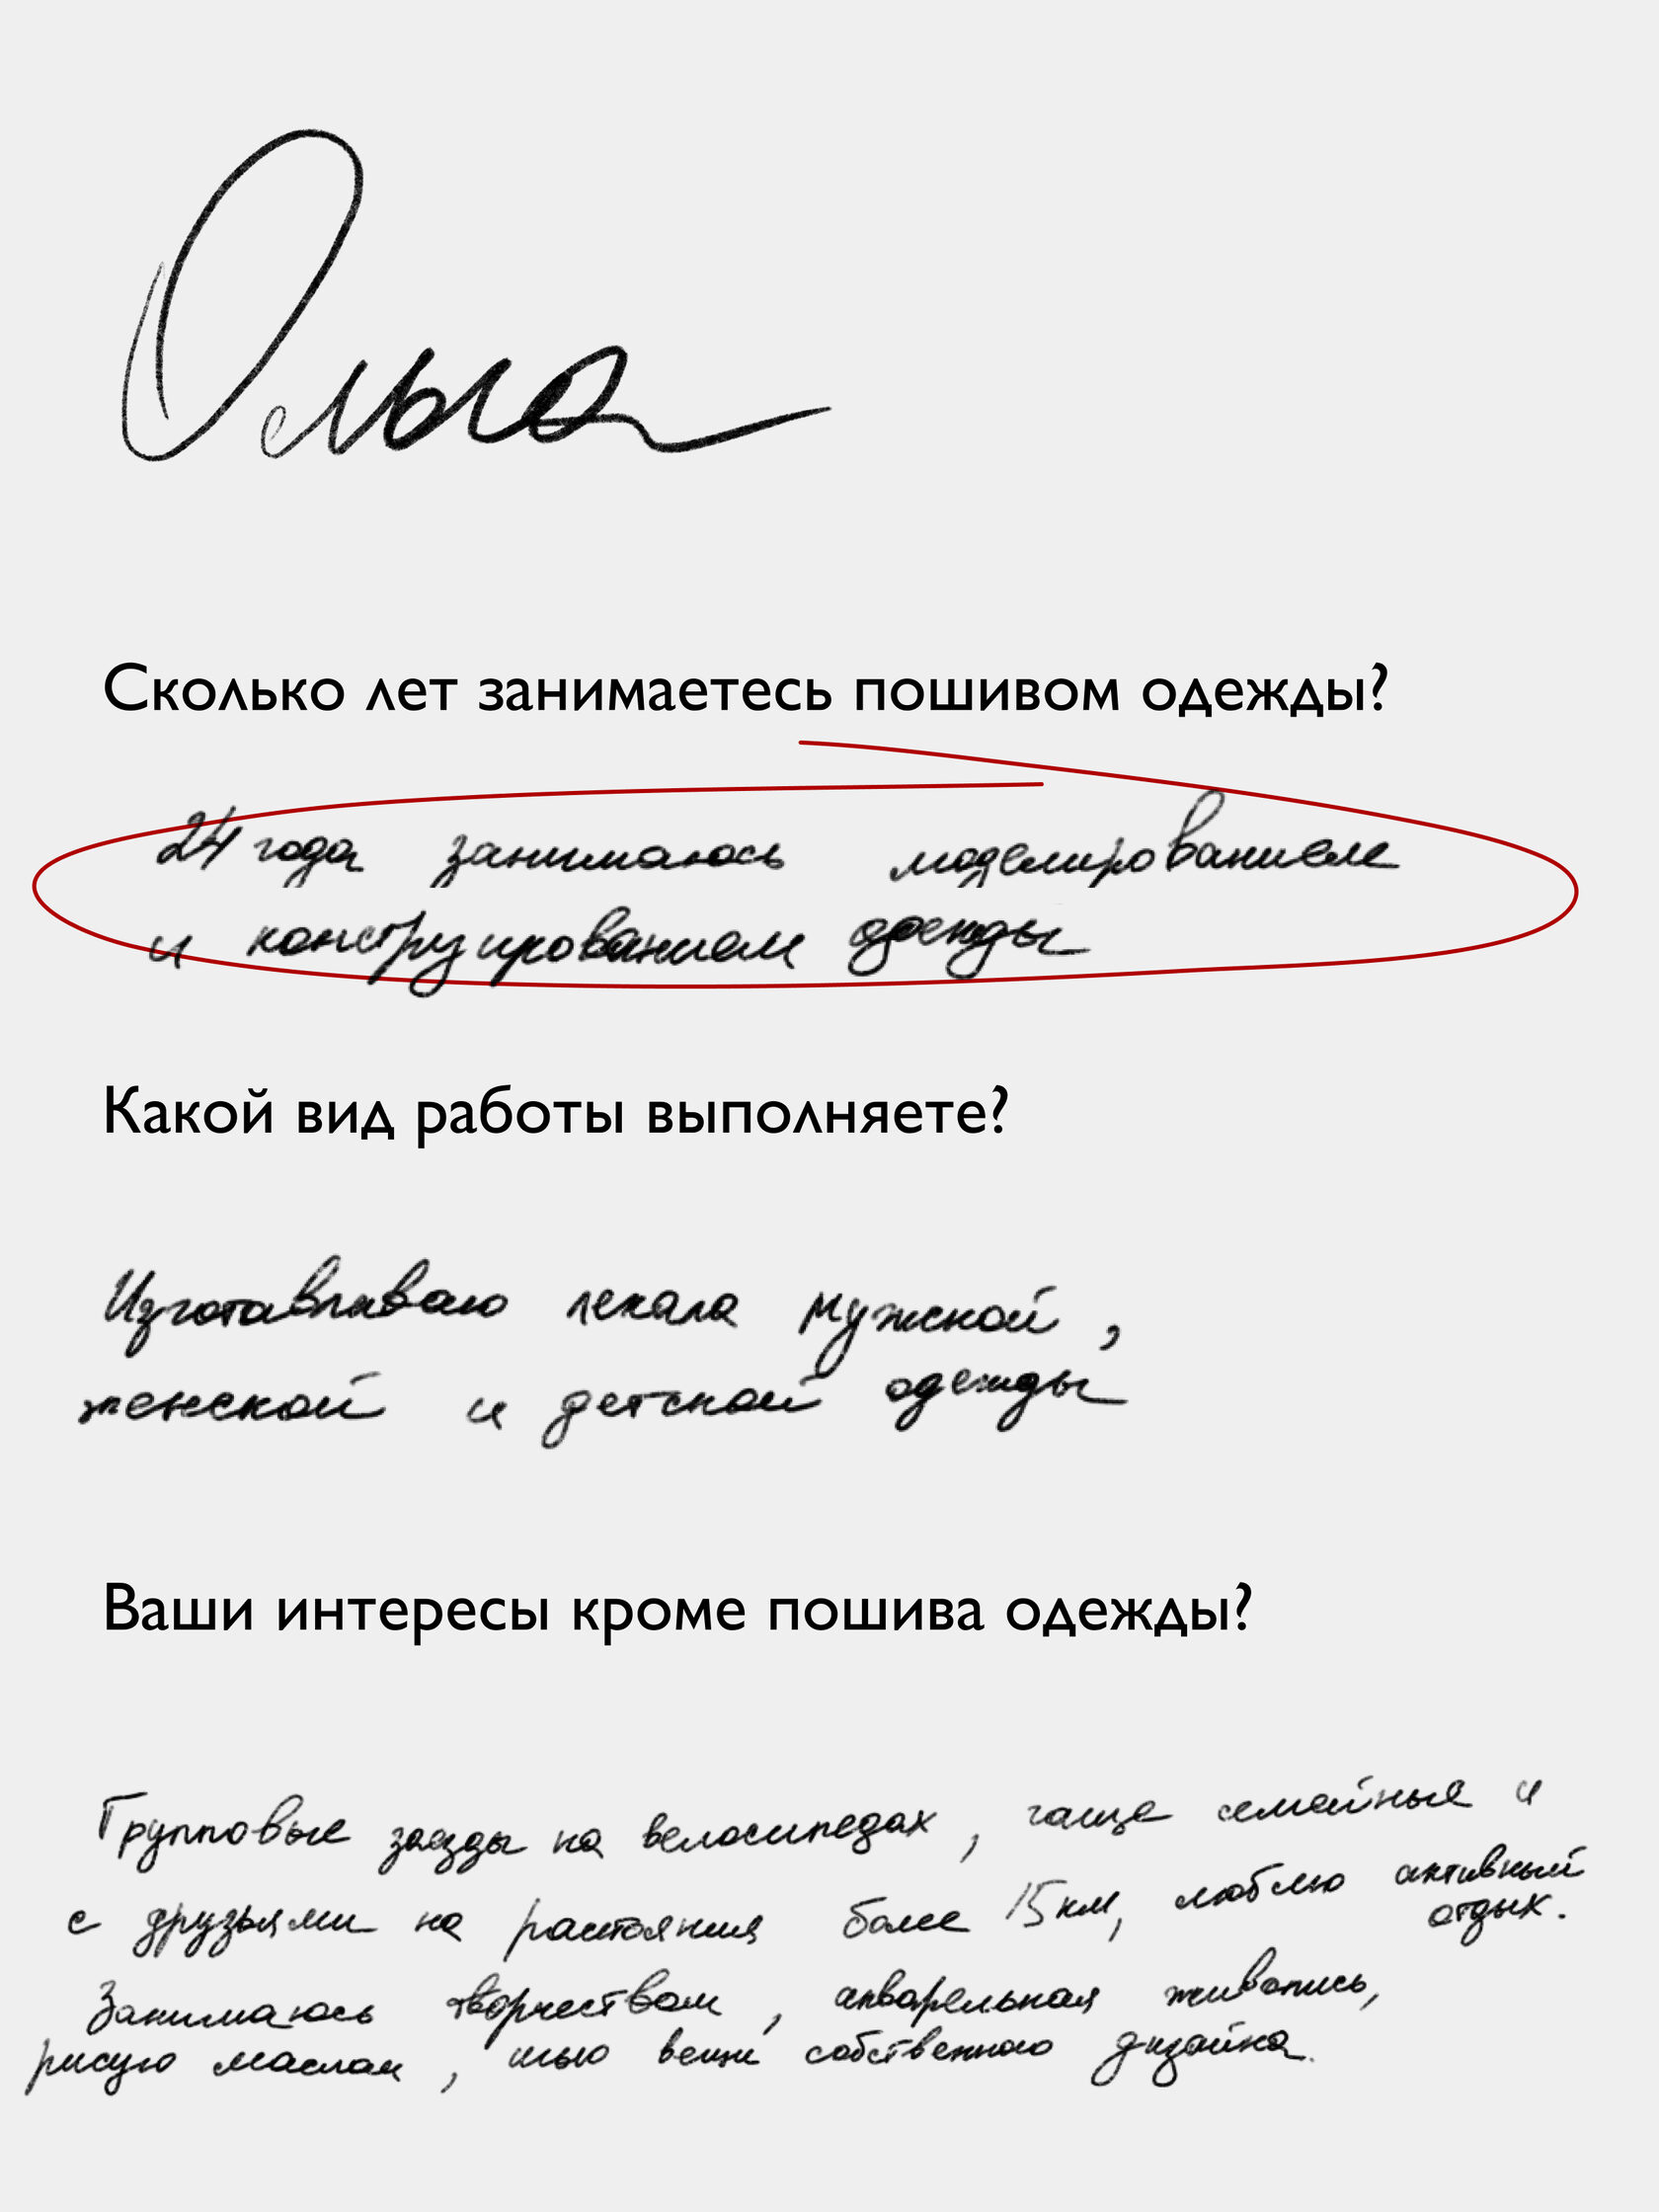 Ольга
Сколько лет занимаетесь пошивом одежды?
24 года занимаюсь моделированием
и конструированием одежды
Какой вид работы выполняете?
Изготавливаю лекала мужской,
женской и детской одежды
Ваши интересы кроме пошива одежды?
Групповые заезды на велосипедах, чаще семейные и
с друзьями на растояния более 15 км, люблю активный
отдых.
Занимаюсь творчеством, акварельная живопись,
рисую маслом, шью вещи собственного дизайна.